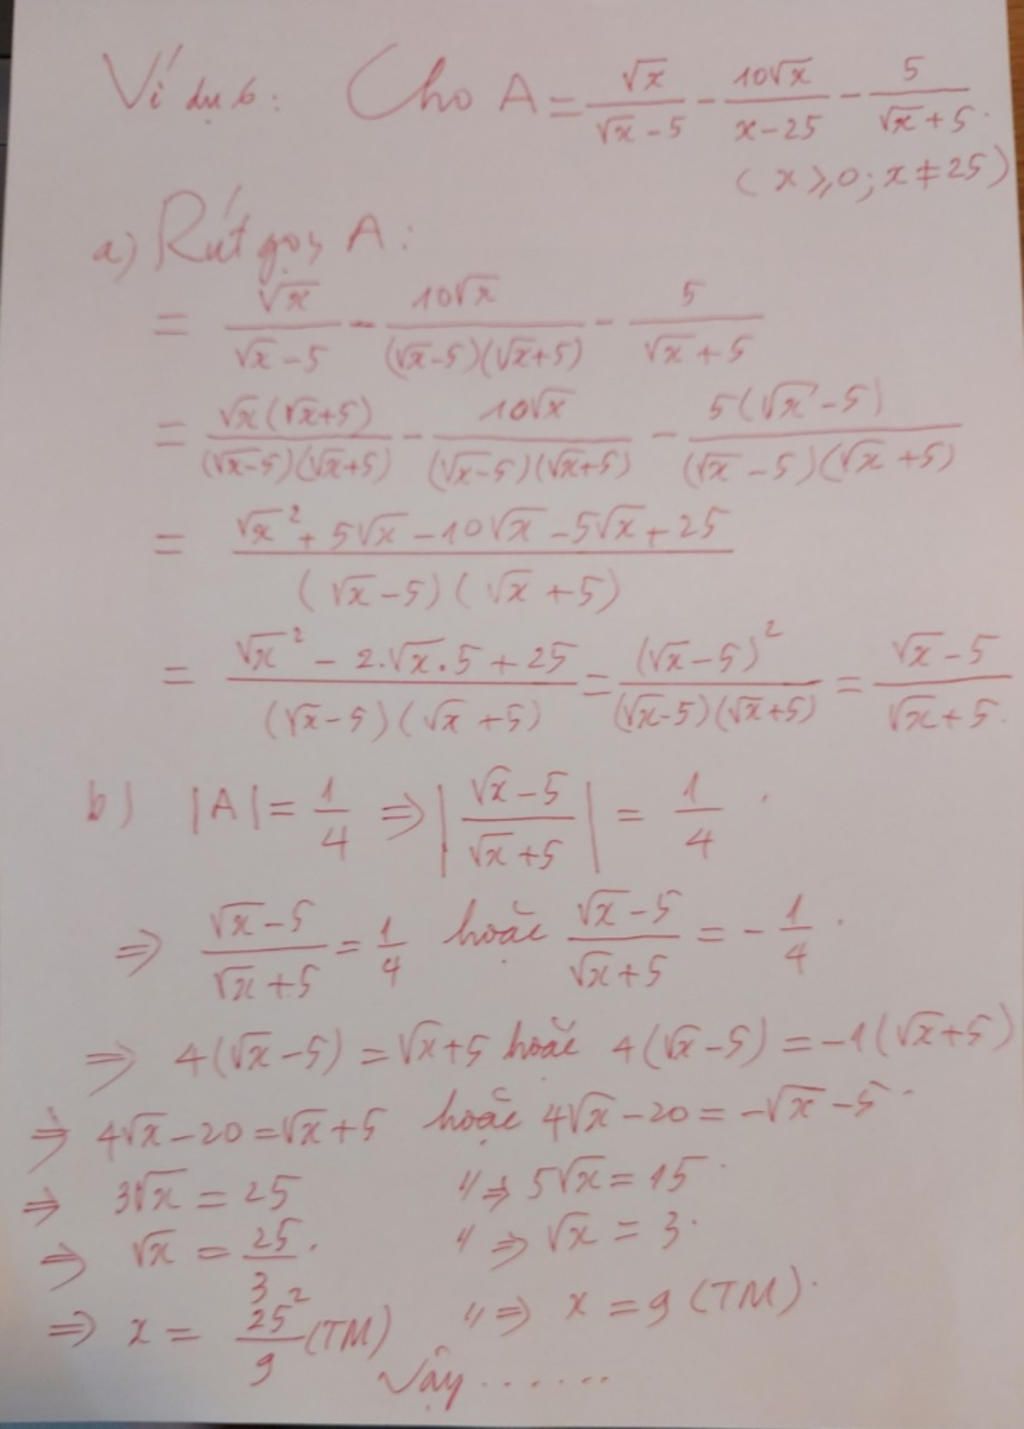 Ví dụ 6: Cho A = √x/(√x - 5) - 10√x/(x - 25) - 5/(√x + 5).
(x ⩾ 0; x ≠ 25)
a) Rút gọn A:
= √x/(√x - 5) - 10√x/((√x - 5)(√x + 5)) - 5/(√x + 5)
= √x(√x + 5)/((√x - 5)(√x + 5)) - 10√x/((√x - 5)(√x + 5)) - 5(√x - 5)/((√x - 5)(√x + 5))
= (√x² + 5√x - 10√x - 5√x + 25)/((√x - 5)(√x + 5))
= (√x² - 2.√x.5 + 25)/((√x - 5)(√x + 5)) = (√x - 5)²/((√x - 5)(√x + 5)) = (√x - 5)/(√x + 5).
b) |A| = 1/4 ⇒ |(√x - 5)/(√x + 5)| = 1/4.
⇒ (√x - 5)/(√x + 5) = 1/4 hoặc (√x - 5)/(√x + 5) = -1/4.
⇒ 4(√x - 5) = √x + 5 hoặc 4(√x - 5) = -1(√x + 5)
⇒ 4√x - 20 = √x + 5 hoặc 4√x - 20 = -√x - 5.
⇒ 3√x = 25 " ⇒ 5√x = 15.
⇒ √x = 25/3. " ⇒ √x = 3.
⇒ x = 25²/9 (TM) " ⇒ x = 9 (TM).
Vậy......